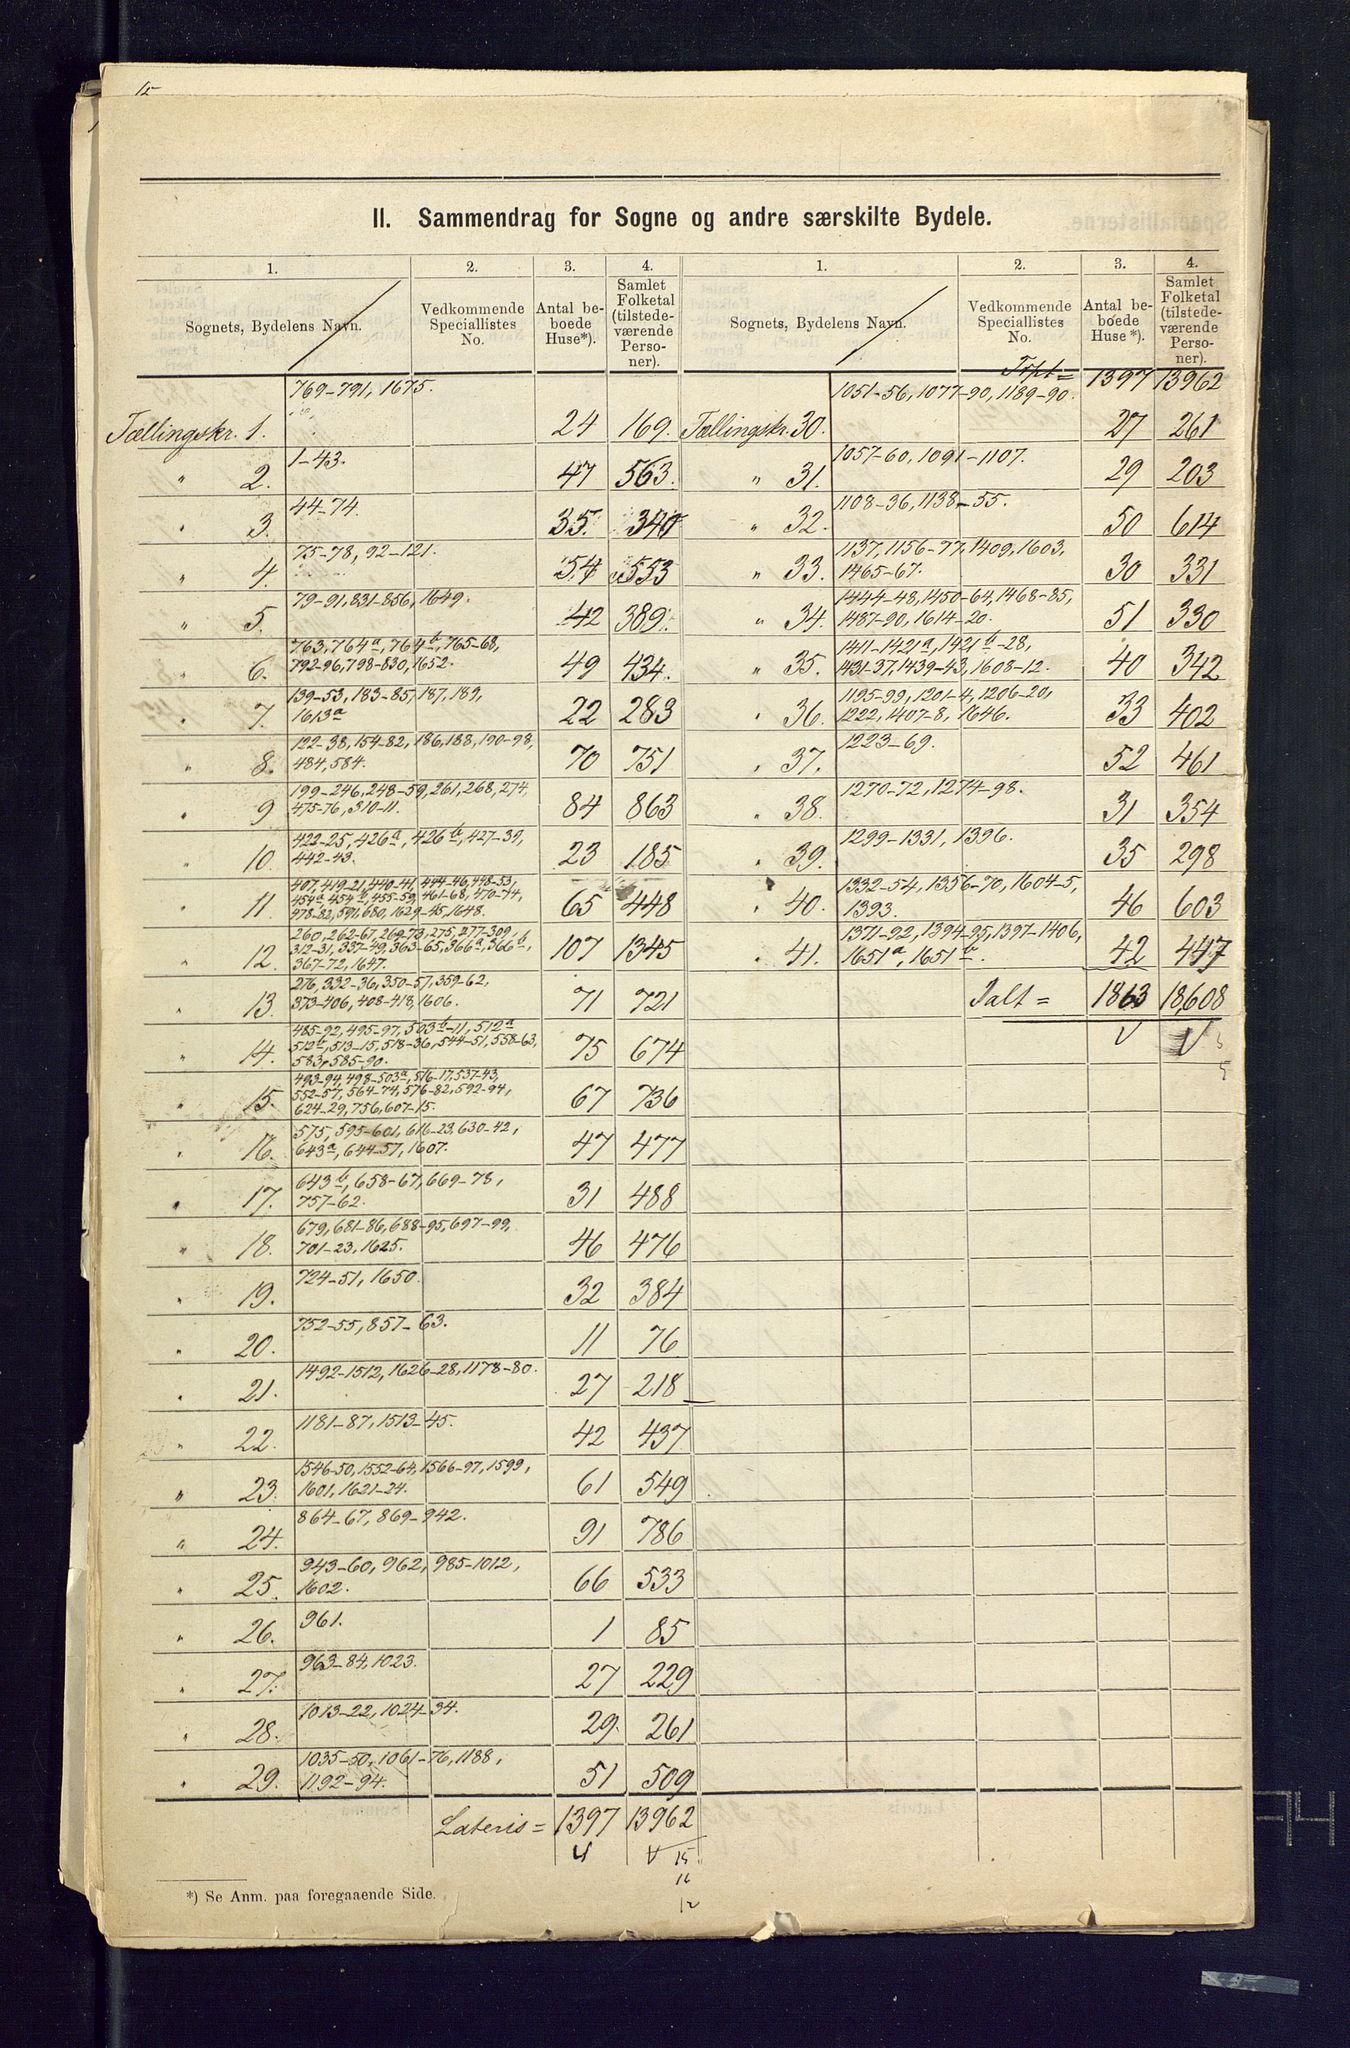 II. Sammendrag for Sogne og andre særskilte Bydele.
1. 2. 3. 4. 1. 2. 3. 4.
Sognets, Bydelens Navn. Vedkommende Speciallistes No. Antal beboede Huse*). Samlet Folketal (tilstedeværende Personer). Sognets, Bydelens Navn. Vedkommende Speciallistes No. Antal beboede Huse*). Samlet Folketal (tilstedeværende Personer).
Tællingskr. 1. 769-791, 1675. 24 169.
" 2. 1-43. 47 563.
" 3. 44-74. 35. 340
" 4. 75-78, 92-121. 54 553
" 5. 79-91, 831-856, 1649. 42 389.
" 6. 763, 764a, 764b, 765-68,
792-96, 798-830, 1652. 49 434.
" 7. 139-53, 183-85, 187, 189,
1613a 22 283
" 8. 122-38, 154-82, 186, 188, 190-98,
484, 584. 70 751
" 9 199-246, 248-59, 261, 268, 274,
475-76, 310-11. 84 863
" 10. 422-25, 426a, 426b, 427-39,
442-43. 23 185
" 11. 407, 419-21, 440-41, 444-46, 448-53,
454a, 454b, 455-59, 461-68, 470-74,
478-82, 591, 680, 1629-45, 1648. 65 448
" 12. 260, 262-67, 269-73, 275, 277-309,
312-31, 337-49, 363-65, 366a, 366b,
367-72, 1647. 107 1345
" 13. 276, 332-36, 350-57, 359-62,
373-406, 408-418, 1606. 71 721
" 14. 485-92, 495-97, 503b-11, 512a
512b, 513-15, 518-36, 544-51, 558-63,
583, 585-90. 75 674
" 15. 493-94, 498-503a, 516-17, 537-43,
552-57, 564-74, 576-82, 592-94,
624-29, 756, 607-15. 67 736
" 16. 575, 595-601, 616-23, 630-42,
643a, 644-57, 1607. 47 477
" 17. 643b, 658-67, 669-78,
757-62. 31 488
" 18. 679, 681-86, 688-95, 697-99,
701-23, 1625. 46 476
" 19. 724-51, 1650. 32 384
" 20. 752-55, 857-63. 11 76
" 21. 1492-1512, 1626-28, 1178-80. 27 218
" 22. 1181-87, 1513-45. 42 437
" 23. 1546-50, 1552-64, 1566-97, 1599,
1601, 1621-24. 61 549
" 24. 864-67, 869-942. 91 786
" 25. 943-60, 962, 985-1012,
1602. 66 533
" 26. 961. 1 85
" 27. 963-84, 1023. 27 229
" 28. 1013-22, 1024-34. 29. 261
" 29. 1035-50, 1061-76, 1188,
1192-94. 51 509
Lateris = 1397 13962
15
16
12
*) Se Anm. paa foregaaende Side.
Trpt = 1397 13962
Tællingskr. 30. 1051-56, 1077-90, 1189-90. 27 261
" 31. 1057-60, 1091-1107. 29 203
" 32. 1108-36, 1138-55. 50 614
" 33. 1137, 1156-77, 1409, 1603,
1465-67. 30 331
" 34. 1444-48, 1450-64, 1468-85,
1487-90, 1614-20. 51 330
" 35. 1411-1421a, 1421b-28,
1431-37, 1439-43, 1608-12. 40 342
" 36. 1195-99, 1201-4, 1206-20,
1222, 1407-8, 1646. 33 402
" 37. 1223-69. 52 461
" 38. 1270-72, 1274-98. 31 354
" 39. 1299-1331, 1396. 35 298
" 40. 1332-54, 1356-70, 1604-5,
1393. 46 603
" 41. 1371-92, 1394-95, 1397-1406,
1651a, 1651b. 42 447
Ialt = 1863 18,608